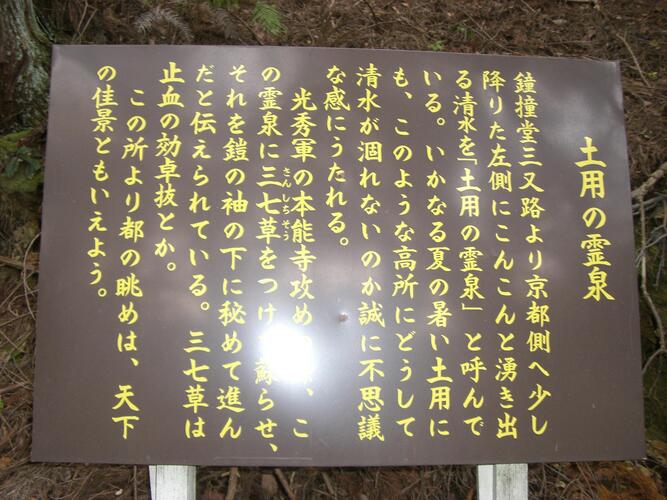 土用の霊泉
鐘撞堂三又路より京都側へ少し
降りた左側にこんこんと湧き出
る清水を「土用の霊泉」と呼んで
いる。いかなる夏の暑い土用に
も、このような高所にどうして
清水が涸れないのか誠に不思議
な感にうたれる。
光秀軍の本能寺攻め、こ
の霊泉に三七草をつけ蘇らせ、
さんしちそう
それを鎧の袖の下に秘めて進ん
だと伝えられている。三七草は
止血の効卓抜とか。
この所より都の眺めは、天下
の佳景ともいえよう。